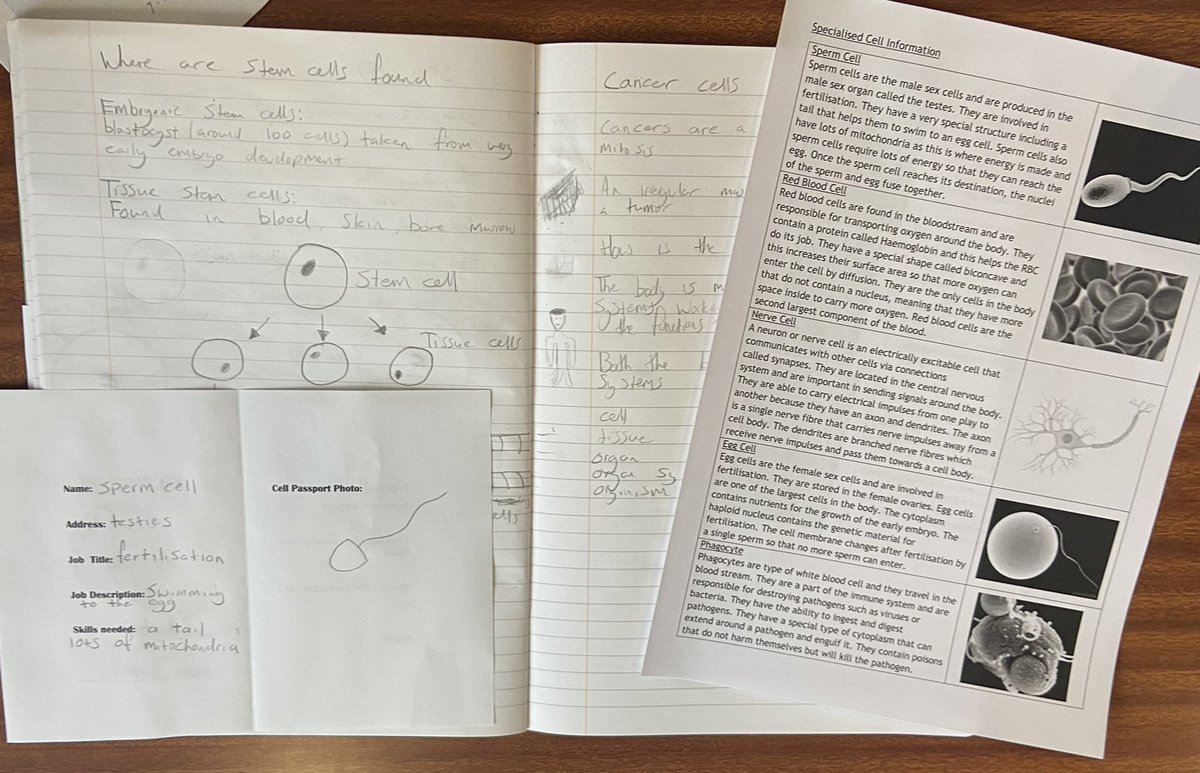 Where are stem cells found
Embryonic stem cells:
blastocyst (around 100 cells) taken from very
early embryo development
Tissue stem cells:
Found in blood, skin, bone marrow
Stem cell
Tissue cells
Name: Sperm cell
Address: testies
Job Title: fertilisation
Job Description: Swimming
to the egg
Skills needed: a tail
lots of mitochondria
Cell Passport Photo:
Cancer cells
Cancers are a
mitosis
An irregular
a tumor
How is the
The body is
Systems
the functions
Both the
Systems
cell
tissue
organ
orga Sy
orginism
Specialised Cell Information
Sperm Cell
Sperm cells are the male sex cells and are produced in the
male sex organ called the testes. They are involved in
fertilisation. They have a very special structure including a
tail that helps them to swim to an egg cell. Sperm cells also
have lots of mitochondria as this is where energy is made and
sperm cells require lots of energy so that they can reach the
egg. Once the sperm cell reaches its destination, the nuclei
of the sperm and egg fuse together.
Red Blood Cell
Red blood cells are found in the bloodstream and are
responsible for transporting oxygen around the body. They
contain a protein called Haemoglobin and this helps the RBC
do its job. They have a special shape called biconcave and
this increases their surface area so that more oxygen can
enter the cell by diffusion. They are the only cells in the body
that do not contain a nucleus, meaning that they have more
space inside to carry more oxygen. Red blood cells are the
second largest component of the blood.
Nerve Cell
A neuron or nerve cell is an electrically excitable cell that
communicates with other cells via connections
called synapses. They are located in the central nervous
system and are important in sending signals around the body.
They are able to carry electrical impulses from one play to
another because they have an axon and dendrites. The axon
is a single nerve fibre that carries nerve impulses away from a
cell body. The dendrites are branched nerve fibres which
receive nerve impulses and pass them towards a cell body.
Egg Cell
Egg cells are the female sex cells and are involved in
fertilisation. They are stored in the female ovaries. Egg cells
are one of the largest cells in the body. The cytoplasm
contains nutrients for the growth of the early embryo. The
haploid nucleus contains the genetic material for
fertilisation. The cell membrane changes after fertilisation by
a single sperm so that no more sperm can enter.
Phagocyte
Phagocytes are type of white blood cell and they travel in the
blood stream. They are a part of the immune system and are
responsible for destroying pathogens such as viruses or
bacteria. They have the ability to ingest and digest
pathogens. They have a special type of cytoplasm that can
extend around a pathogen and engulf it. They contain poisons
that do not harm themselves but will kill the pathogen.